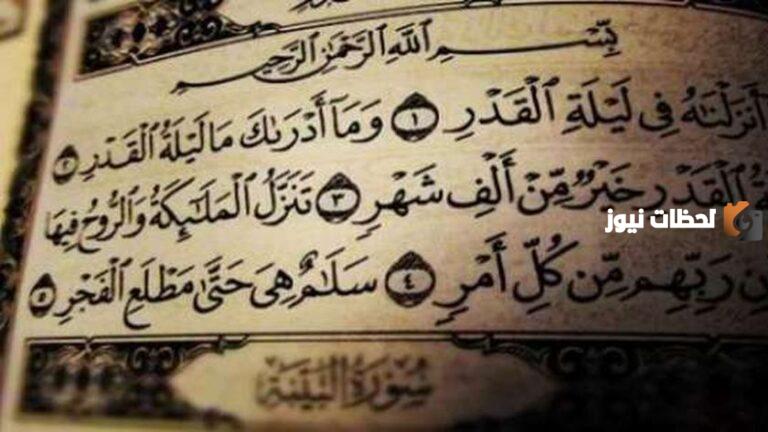 بِسْمِ اللَّهِ الرَّحْمَٰنِ الرَّحِيمِ
أَنزَلْنَٰهُ فِى لَيْلَةِ الْقَدْرِ ١ وَمَآ أَدْرَىٰكَ مَا لَيْلَةُ الْقَدْرِ ٢
الْقَدْرِ خَيْرٌ مِّنْ أَلْفِ شَهْرٍ ٣ تَنَزَّلُ الْمَلَٰٓئِكَةُ وَالرُّوحُ فِيهَا
رَبِّهِم مِّن كُلِّ أَمْرٍ ٤ سَلَٰمٌ هِىَ حَتَّىٰ مَطْلَعِ الْفَجْرِ ٥
سُورَةُ الْبَيِّنَةِ
لحظات نيوز